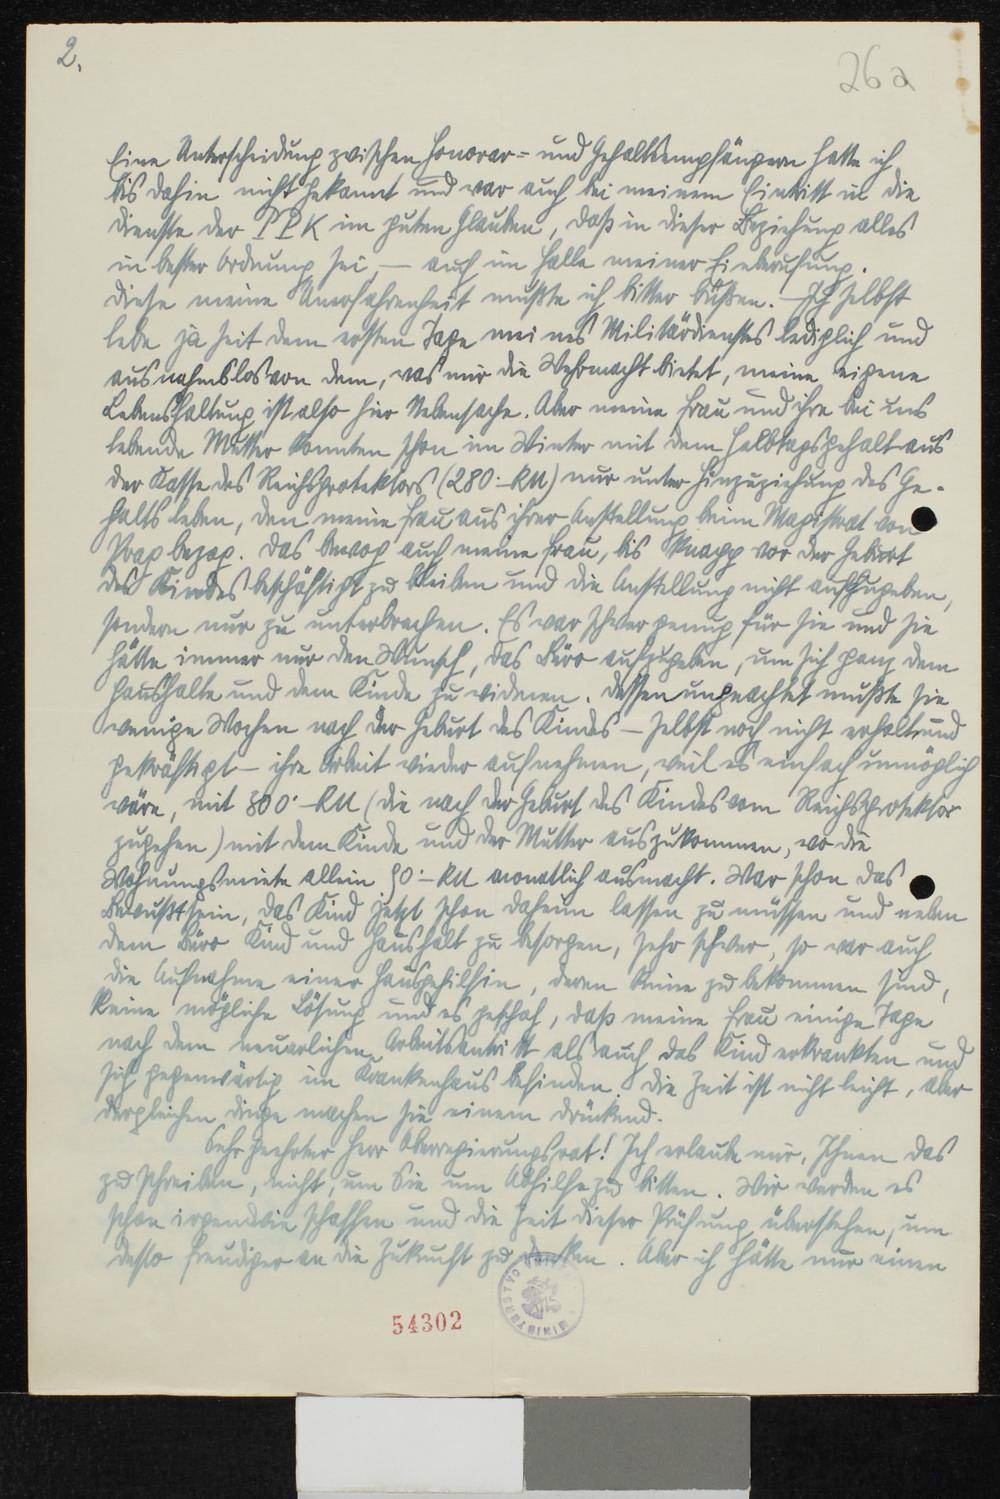 2.
26a
Eine Unterscheidung zwischen Honorar- und Gehaltsempfängern hatte ich
bis dahin nicht gekannt und war auch bei meinem Eintritt in die
Dienste der PPK im guten Glauben, daß in dieser Beziehung alles
in bester Ordnung sei, — auch im Falle meiner Einberufung.
Diese meine Unerfahrenheit mußte ich bitter büßen. — Ich selbst
lebe ja seit dem ersten Tage meines Militärdienstes lediglich und
ausnahmslos von dem, was mir die Wehrmacht bietet, meine eigene
Lebenshaltung ist also hier Nebensache. Aber meine Frau und ihre bei uns
lebende Mutter konnten schon im Winter mit dem Halbtagsgehalt aus
der Kasse des Reichsprotektors (280·–RM) nur unter Hinzuziehung des Ge-
halts leben, den meine Frau aus ihrer Anstellung beim Magistrat von
Prag bezog. Das bewog auch meine Frau, bis knapp vor der Geburt
des Kindes beschäftigt zu bleiben und die Anstellung nicht aufzugeben,
sondern nur zu unterbrechen. Es war schwer genug für sie und sie
hätte immer nur den Wunsch, das Büro aufzugeben, um sich ganz dem
Haushalte und dem Kinde zu widmen. Dessen ungeachtet mußte sie
wenige Wochen nach der Geburt des Kindes — selbst noch nicht erholt und
gekräftigt — ihre Arbeit wieder aufnehmen, weil es einfach unmöglich
wäre, mit 300·–RM (die nach der Geburt des Kindes vom Reichsprotektor
zugehen) mit dem Kinde und der Mutter auszukommen, wo die
Wohnungsmiete allein 90·–RM monatlich ausmacht. War schon das
Bewußtsein, das Kind jetzt schon daheim lassen zu müssen und neben
dem Büro Kind und Haushalt zu besorgen, sehr schwer, so war auch
die Aufnahme einer Hausgehilfin, deren keine zu bekommen sind,
keine mögliche Lösung und es geschah, daß meine Frau einige Tage
nach dem neuerlichen Arbeitsantritt als auch das Kind erkrankten und
sich gegenwärtig im Krankenhaus befinden. Die Zeit ist nicht leicht, aber
dergleichen Dinge machen sie einem drückend.
Sehr geehrter Herr Oberregierungsrat! Ich erlaube mir, Ihnen das
zu schreiben, nicht, um Sie um Abhilfe zu bitten. Wir werden es
schon irgendwie schaffen und die Zeit dieser Prüfung überstehen, um
desto freudiger an die Zukunft zu denken. Aber ich hätte nur einen
54302